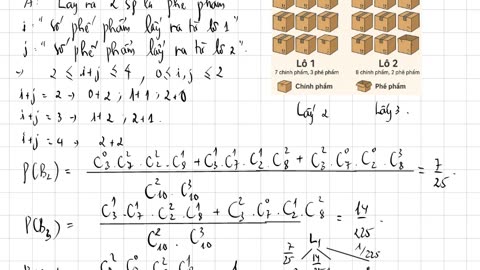 A: "Lấy ra 2 sp là phế phẩm"
i: "số phế phẩm lấy ra từ lô 1"
j: "số phế phẩm lấy ra từ lô 2".
→ 2 ≤ i+j ≤ 4 , 0 ≤ i, j ≤ 2
i+j = 2 → 0+2 ; 1+1 ; 2+0
i+j = 3 → 1+2 , 2+1.
i+j = 4 → 2+2
Lô 1 Lô 2
7 chính phẩm, 3 phế phẩm 8 chính phẩm, 2 phế phẩm
Chính phẩm Phế phẩm
Lấy 2 Lấy 3.
P(B₂) = (C₃⁰ . C₇² . C₂² . C₈¹ + C₃¹ . C₇¹ . C₂¹ . C₈² + C₃² . C₇⁰ . C₂⁰ . C₈³) / (C₁₀² . C₁₀³) = 7/25.
P(B₃) = (C₃¹ . C₇¹ . C₂² . C₈¹ + C₃² . C₇⁰ . C₂¹ . C₈²) / (C₁₀² . C₁₀³) = 14/225.
L₁
7/25 14/225 1/225